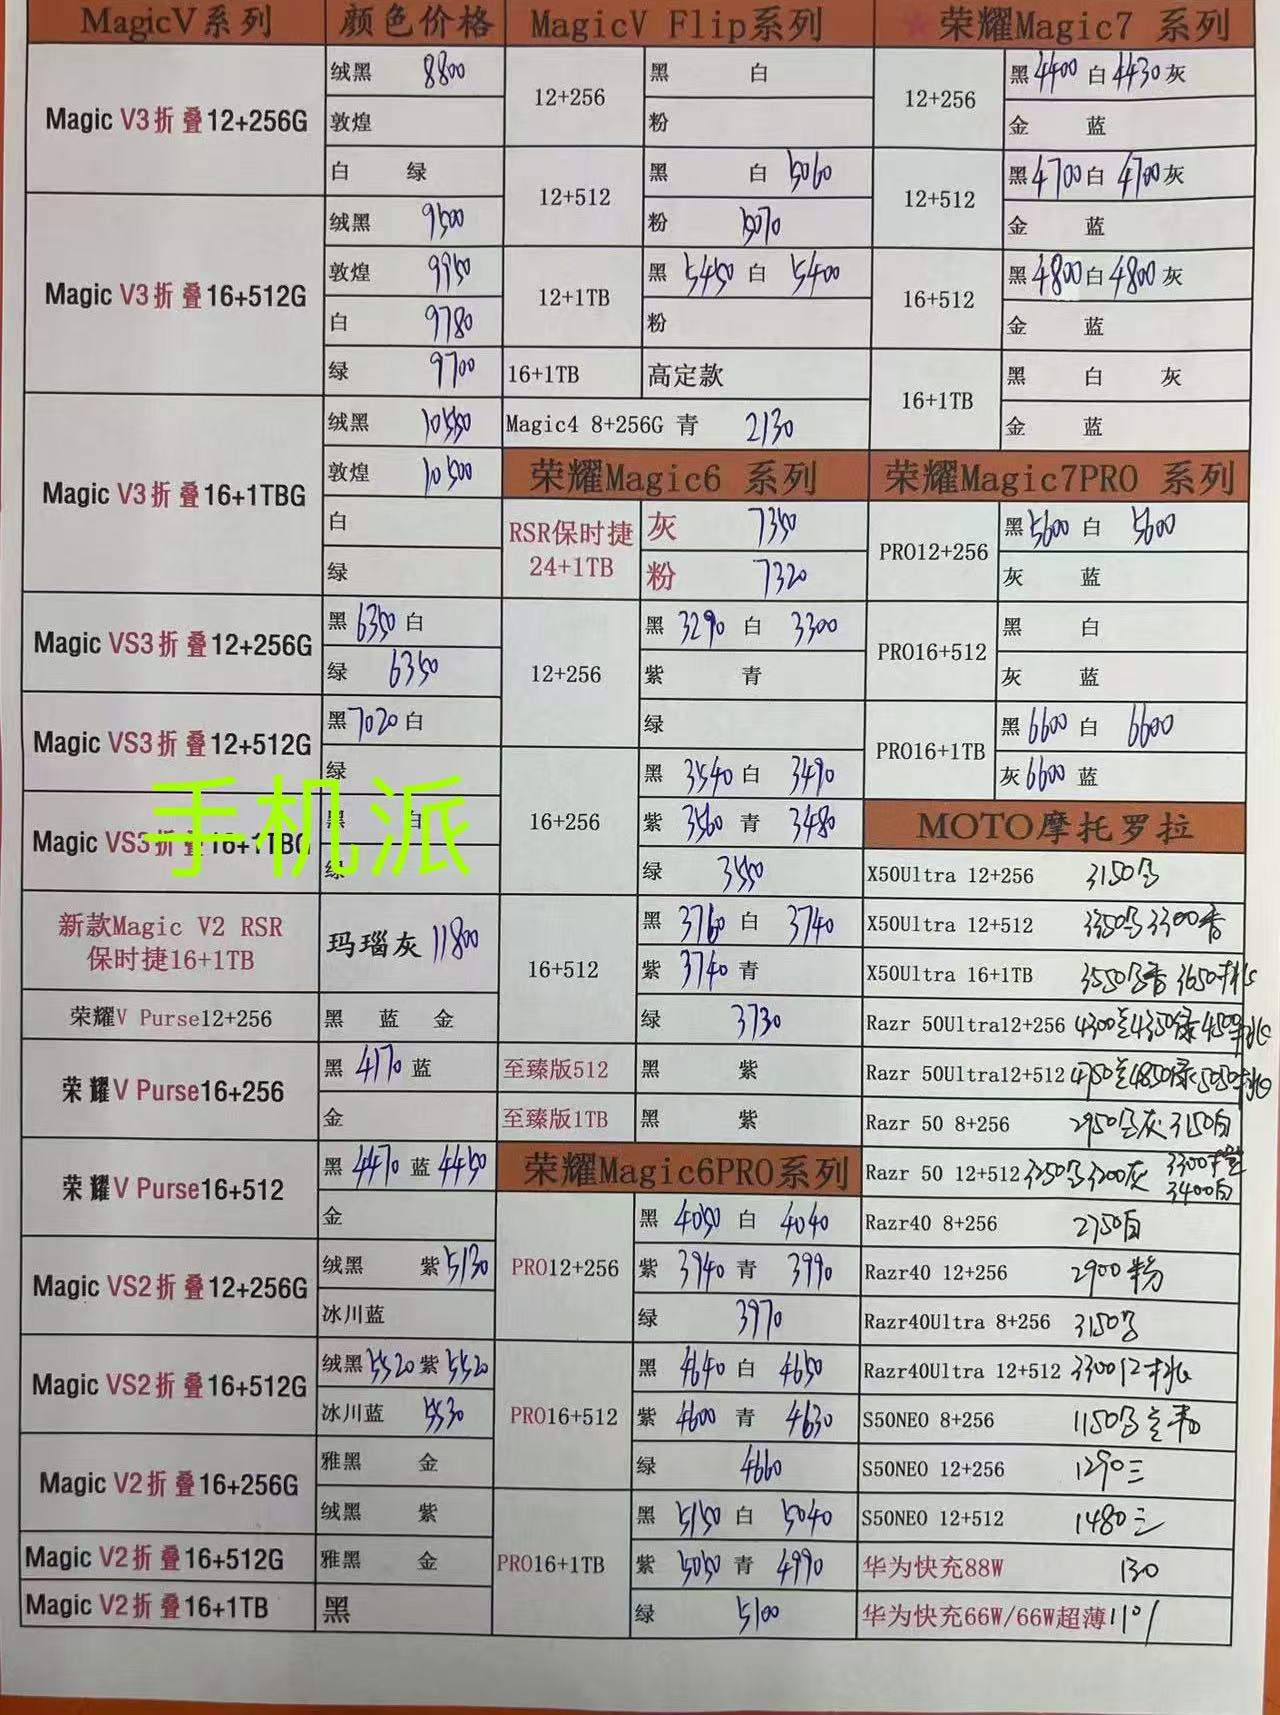 MagicV系列 颜色价格
Magic V3折叠12+256G 绒黑 8800
敦煌
白 绿
Magic V3折叠16+512G 绒黑 9500
敦煌 9950
白 9780
绿 9700
Magic V3折叠16+1TBG 绒黑 10550
敦煌 10500
白
绿
Magic VS3折叠12+256G 黑 6350 白
绿 6350
Magic VS3折叠12+512G 黑 7020 白
绿
Magic VS3折叠16+1TBG 黑 白
绿
手机派
新款Magic V2 RSR
保时捷16+1TB
玛瑙灰 11800
荣耀V Purse12+256 黑 蓝 金
荣耀V Purse16+256 黑 4170 蓝
金
荣耀V Purse16+512 黑 4470 蓝 4450
金
Magic VS2折叠12+256G 绒黑 紫 5130
冰川蓝
Magic VS2折叠16+512G 绒黑 5520 紫 5520
冰川蓝 5530
Magic V2折叠16+256G 雅黑 金
绒黑 紫
Magic V2折叠16+512G 雅黑 金
Magic V2折叠16+1TB 黑
MagicV Flip系列
12+256 黑 白
粉
12+512 黑 白 5060
粉 5070
12+1TB 黑 5450 白 5400
粉
16+1TB 高定款
Magic4 8+256G 青 2130
荣耀Magic6 系列
RSR保时捷
24+1TB
灰 7350
粉 7320
12+256 黑 3290 白 3300
紫 青
绿
16+256 黑 3540 白 3490
紫 3560 青 3480
绿 3550
16+512 黑 3760 白 3740
紫 3740 青
绿 3730
至臻版512 黑 紫
至臻版1TB 黑 紫
荣耀Magic6PRO系列
PRO12+256 黑 4050 白 4040
紫 3940 青 3990
绿 3970
PRO16+512 黑 4640 白 4650
紫 4600 青 4630
绿 4660
PRO16+1TB 黑 5150 白 5040
紫 5050 青 4990
绿 5100
★荣耀Magic7 系列
12+256 黑 4400 白 4430 灰
金 蓝
12+512 黑 4700 白 4700 灰
金 蓝
16+512 黑 4800 白 4800 灰
金 蓝
16+1TB 黑 白 灰
金 蓝
荣耀Magic7PRO 系列
PRO12+256 黑 5600 白 5600
灰 蓝
PRO16+512 黑 白
灰 蓝
PRO16+1TB 黑 6600 白 6600
灰 6600 蓝
MOTO摩托罗拉
X50Ultra 12+256 3150
X50Ultra 12+512 3300
X50Ultra 16+1TB 3550 3650
Razr 50Ultra12+256 4300 4350绿
Razr 50Ultra12+512 4850绿 5050
Razr 50 8+256 2950 灰 3150白
Razr 50 12+512 3250 3200灰 3300 3400白
Razr40 8+256 2750白
Razr40 12+256 2900粉
Razr40Ultra 8+256 3150
Razr40Ultra 12+512 3300
S50NEO 8+256 1150
S50NEO 12+256 1290三
S50NEO 12+512 1480三
华为快充88W 130
华为快充66W/66W超薄 110